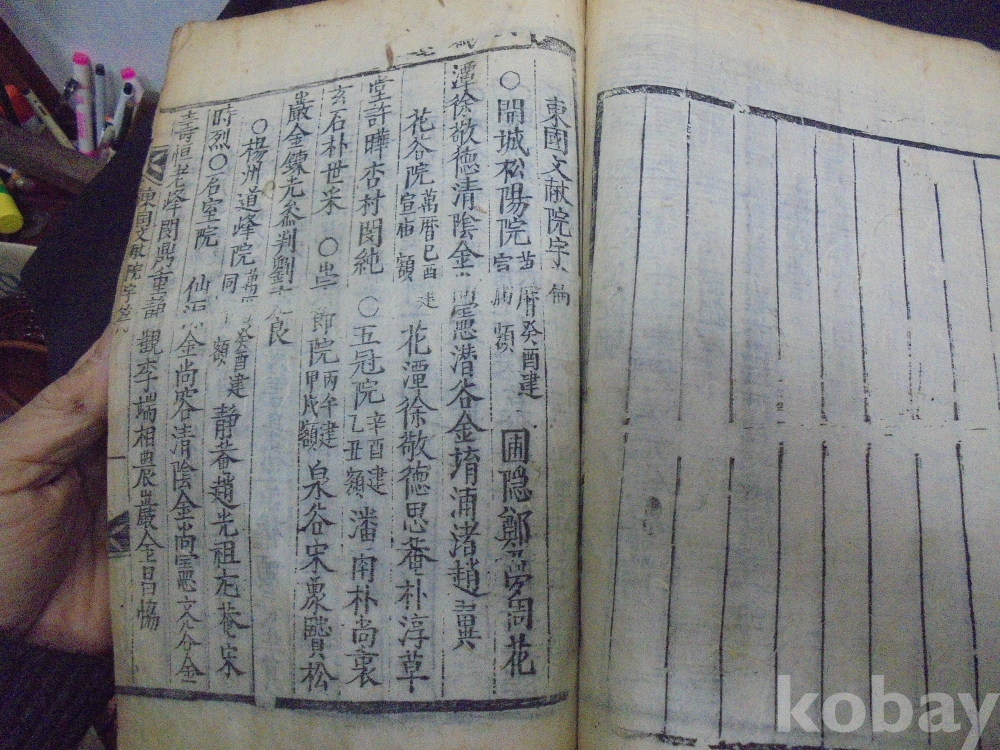 東國文献院宇
○開城松陽院 萬曆癸酉建 圃隐鄭夢周花
潭徐敬德清陰金尚憲潛谷金堉浦渚趙翼
花谷院萬曆己酉建宣庙額 花潭徐敬德思菴朴淳草
堂許曄杏村閔純○五冠院辛酉建乙丑額潘南朴尚衷
玄石朴世采○崇節院丙午建甲戌額泉谷宋象賢松
巖金鍊光叅判劉克良
○楊州道峰院 癸酉建同額 静菴趙光祖尤菴宋
時烈○石室院 仙源金尚容清陰金尚憲文谷金
壽恒老峰閔鼎重静觀李端相農巖金昌恊
東國文献院宇
kobay